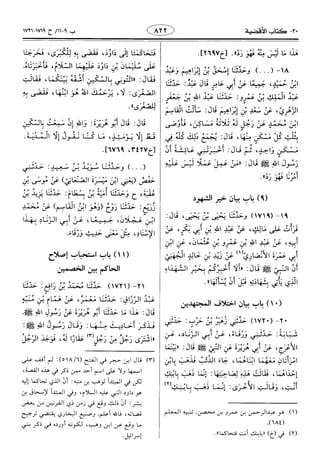 ٣٠- كتاب الأقضية
٨٢٢
ب ٩-١١/ ح ١٧١٩-١٧٢١
هذا ما ليس منه فهو رد». [خ٢٦٩٧].
١٨-(...) وحدثنا إسحق بن إبراهيم وعبد
بن حميد، جميعا عن أبي عامر قال عبد: حدثنا
عبد الملك بن عمرو: حدثنا عبد الله بن جعفر
الزهري، عن سعد بن إبراهيم قال: سألت القاسم
ابن محمد عن رجل له ثلاثة مساكن، فأوصى
بثلث كل مسكن منها، قال: يجمع ذلك كله في
مسكن واحد، ثم قال: أخبرتني عائشة أن
رسول الله ﷺ قال: «من عمل عملا ليس عليه
أمرنا فهو رد».
(٩) باب بيان خير الشهود
١٩-(١٧١٩) وحدثنا يحيى بن يحيى، قال:
قرأت على مالك، عن عبد الله بن أبي بكر، عن
أبيه، عن عبد الله بن عمرو بن عثمان، عن ابن
أبي عمرة الأنصاري(١) عن زيد بن خالد الجهني
أن النبي ﷺ قال: «ألا أخبركم بخير الشهداء
الذي يأتي بشهادته قبل أن يسألها».
(١٠) باب بيان اختلاف المجتهدين
٢٠-(١٧٢٠) حدثني زهير بن حرب: حدثني
شبابة: حدثني ورقاء، عن أبي الزناد، عن
الأعرج، عن أبي هريرة عن النبي ﷺ قال: «بينما
امرأتان معهما ابناهما، جاء الذئب فذهب بابن
إحداهما، فقالت هذه لصاحبتها: إنما ذهب بابنك
أنت، وقالت الأخرى: إنما ذهب بابنك(٢)
(١) هو عبدالرحمن بن عمرو بن محصن. تنبيه المعلم
(٦٨٤).
(٢) في (خ) «بابنك أنت فتحاكمتا».
فتحاكمتا إلى داود، فقضى به للكبرى، فخرجتا
على سليمان بن داود عليهما السلام، فأخبرتاه.
فقال: «ائتوني بالسكين أشقه بينكما، فقالت
الصغرى: لا، يرحمك الله هو ابنها، فقضى به
للصغرى».
قال: قال أبو هريرة: والله إن سمعت بالسكين
قط إلا يومئذ، ما كنا نقول إلا المدية.
[خ٣٤٢٧، ٦٧٦٩].
(...) وحدثنا سويد بن سعيد: حدثني
حفص (يعني ابن ميسرة الصنعاني) عن موسى بن
عقبة، ح وحدثنا أمية بن بسطام: حدثنا يزيد بن
زريع: حدثنا روح (وهو ابن القاسم) عن محمد
ابن عجلان، جميعا، عن أبي الزناد بهذا
الإسناد، مثل معنى حديث ورقاء.
(١١) باب استحباب إصلاح
الحاكم بين الخصمين
٢١-(١٧٢١) حدثنا محمد بن رافع: حدثنا
عبد الرزاق: حدثنا معمر، عن همام بن منبه
قال: هذا ما حدثنا أبو هريرة عن رسول الله ﷺ،
فذكر أحاديث منها: وقال رسول الله ﷺ:
«اشترى رجل من رجل(٣) عقارا له، فوجد الرجل
(٣) قال ابن حجر في الفتح (٥١٨/٦): لم أقف على
اسمهما ولا على اسم أحد ممن ذكر في هذه القصة،
لكن في المبتدأ لوهب بن منبه: أن الذي تحاكما إليه
هو داود النبي عليه السلام، وفي المبتدأ لإسحاق بن
بشر: أن ذلك وقع في زمن ذي القرنين من بعض
قضاته، فالله أعلم. وصنيع البخاري يقتضي ترجيح
ما وقع عن ابن وهب، لكونه أورده في ذكر بني
إسرائيل.